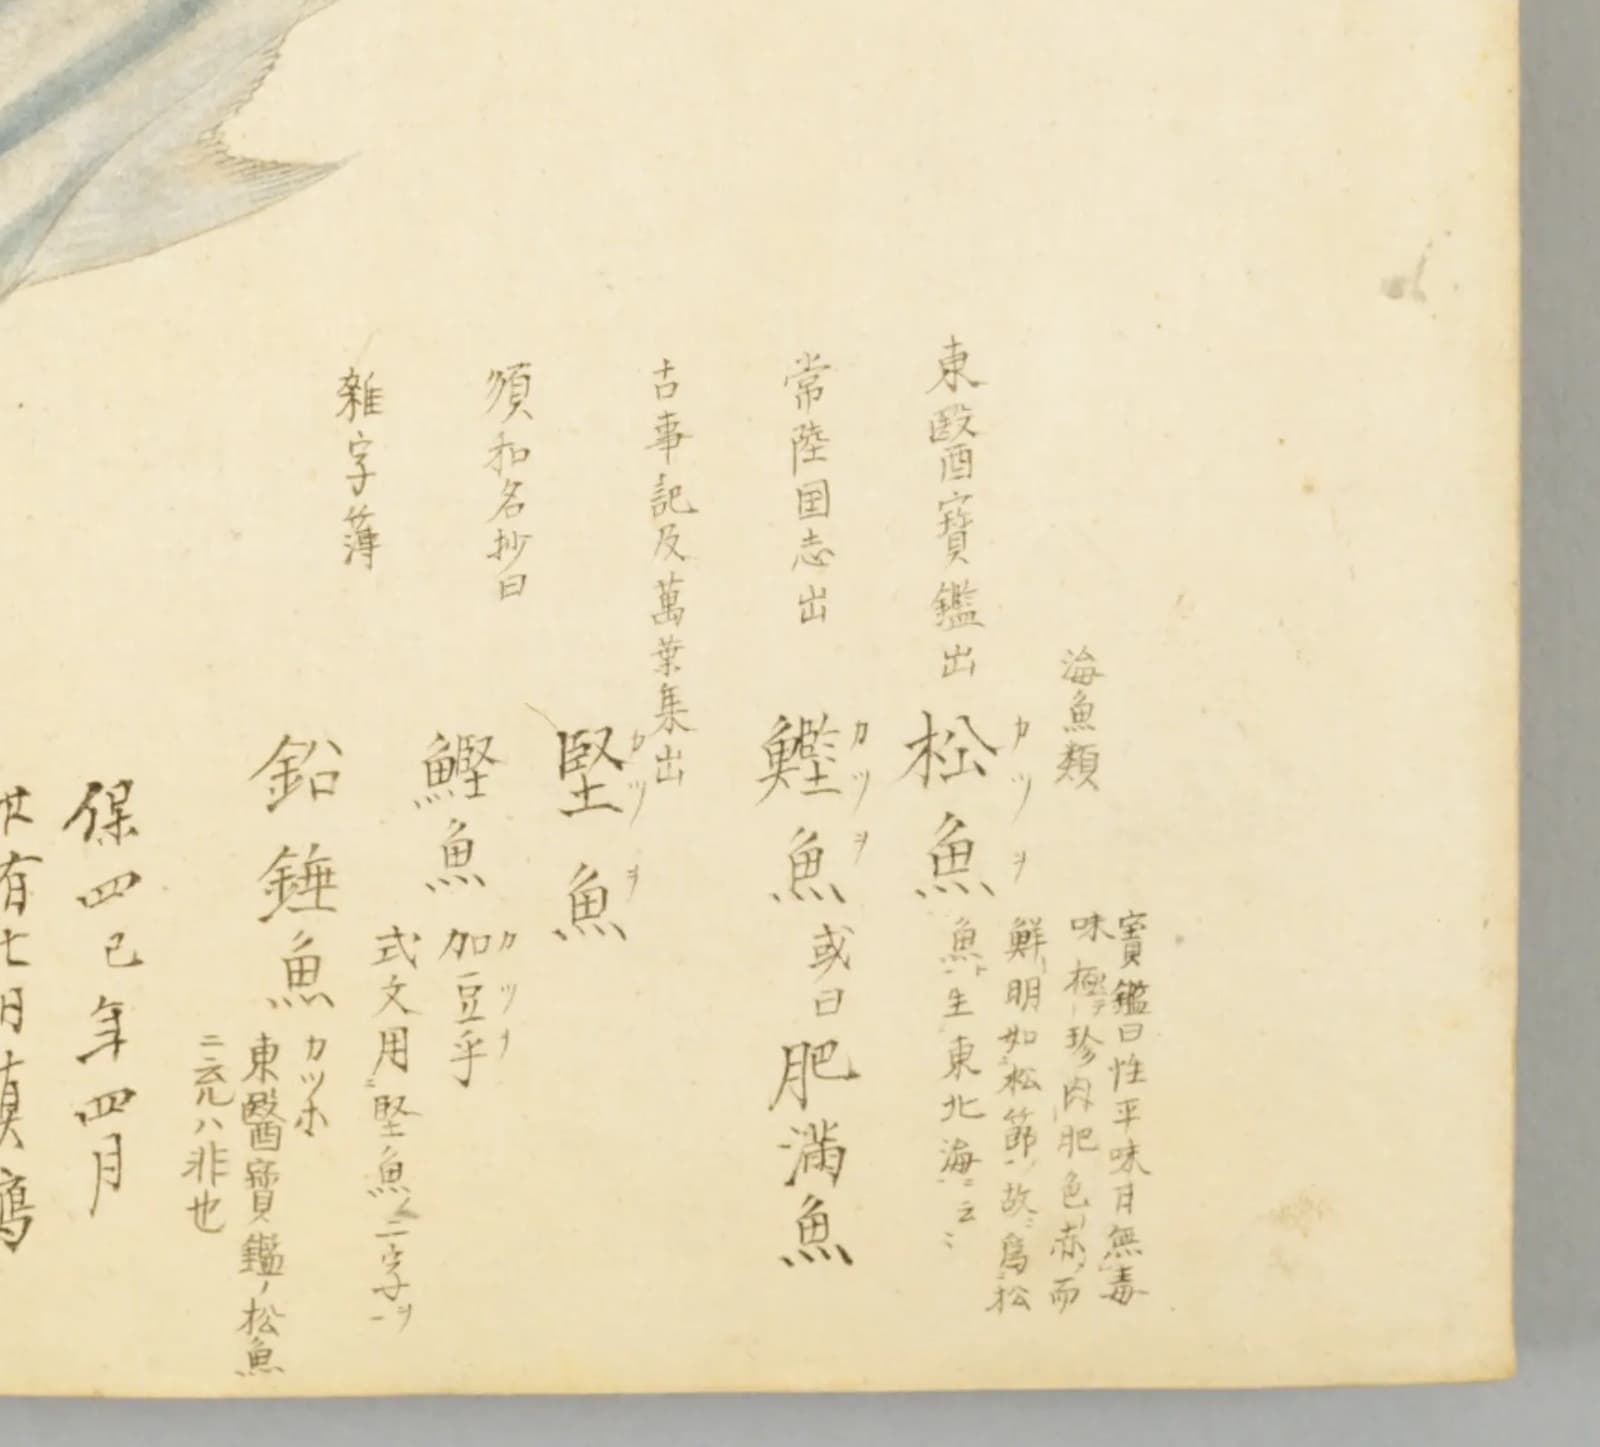 海魚類
東醫寳鑑出
松魚
カツヲ
寳鑑曰性平味甘無毒
味極テ珍肉肥色赤而
鮮明如松節故爲松
魚生東北海云々
常陸国志出
鰹魚或曰肥満魚
カツヲ
古事記及萬葉集出
堅魚
カツヲ
須和名抄曰
鰹魚加豆乎
カツヲ
式文用堅魚二字ヲ
雜字簿
鉛錘魚
カツホ
東醫寳鑑ノ松魚
ニ充ハ非也
保四己年四月
有七月真